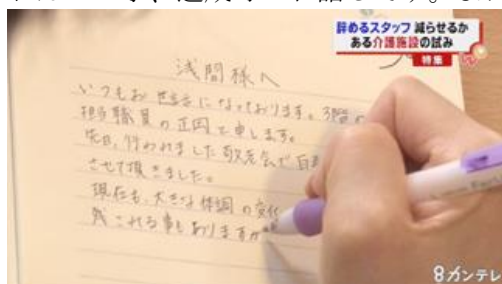 辞めるスタッフ 減らせるか
ある介護施設の試み
特集
浅間様へ
いつもお世話になっております。3階
職員の正田と申します。
先日、行われました敬老会で
させて頂きました。
現在も、大きな体調の変化
残される事もありますが
8カンテレ